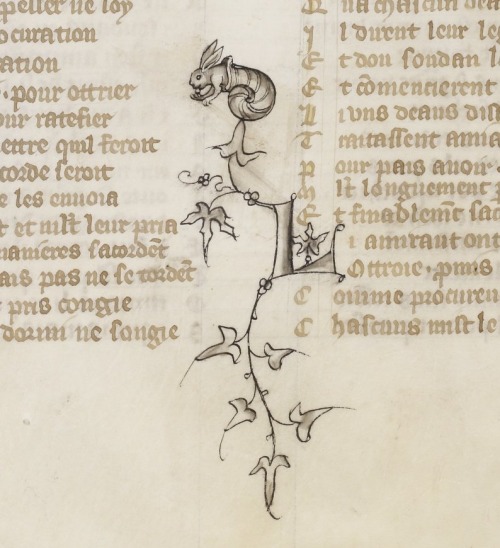 ppeller ne loy
ocuration
ation
pour ottrier
our ratefier
ettre quil feroit
corde seroit
e les envoia
t et mist leur pria
manieres sacordent
ais pas ne se tordent
pris congie
dormi ne songie
I l dirent leur
E t dou soudan
E t comencierent
T raitassent
P our pais avoir
M lt longuement
E t finablemt
L i amiraut
Ottroie, puis
C omme procureu
C hascuns mist le